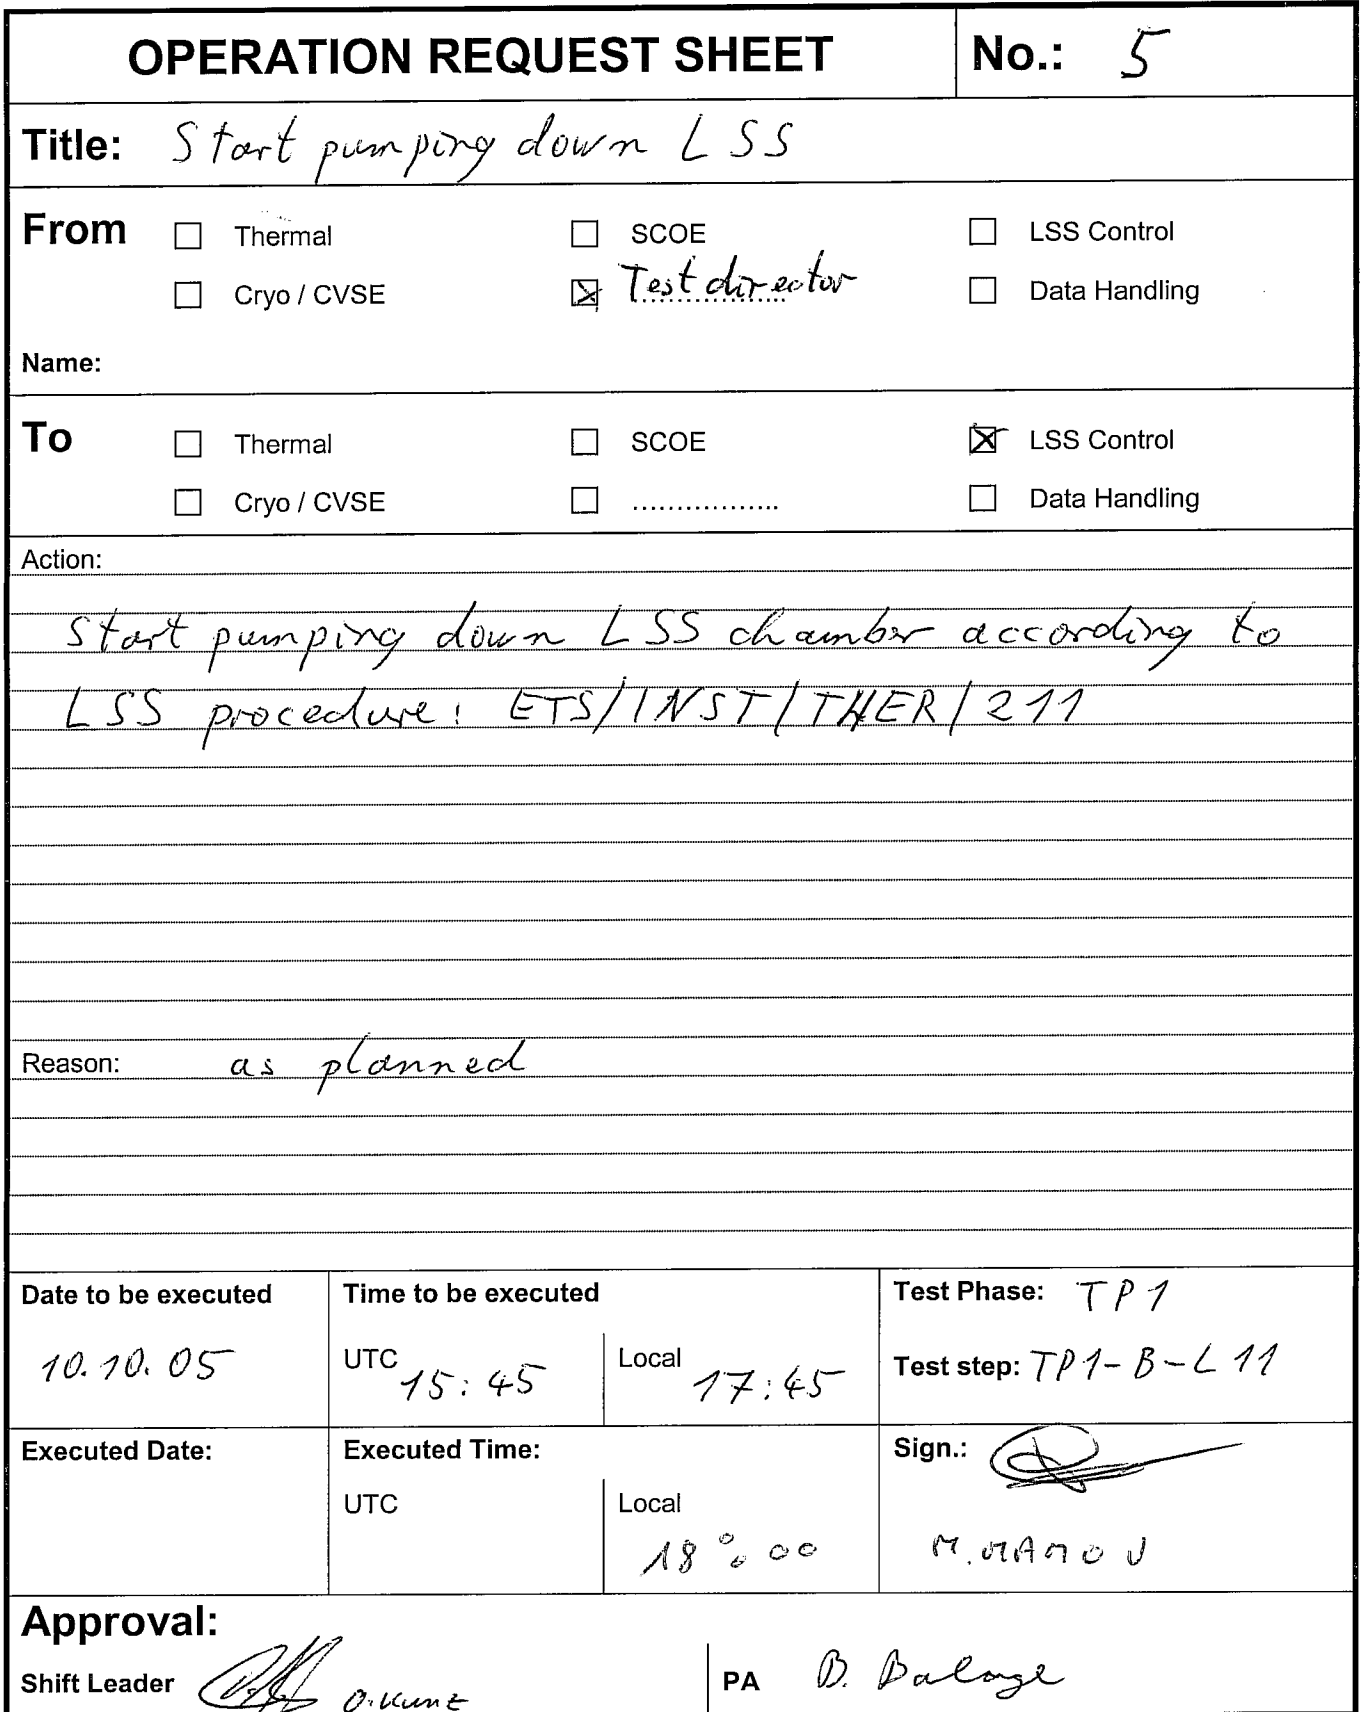 OPERATION REQUEST SHEET No.: 5
Title: Start pumping down LSS
From Thermal SCOE LSS Control
Cryo / CVSE Test director Data Handling
Name:
To Thermal SCOE LSS Control
Cryo / CVSE ................. Data Handling
Action:
Start pumping down LSS chamber according to
LSS procedure: ETS/INST/THER/211
Reason: as planned
Date to be executed Time to be executed Test Phase: TP1
10.10.05 UTC 15:45 Local 17:45 Test step: TP1-B-L11
Executed Date: Executed Time: Sign.:
UTC Local
18:00 M. MAMOU
Approval:
Shift Leader O. Kunz PA B.